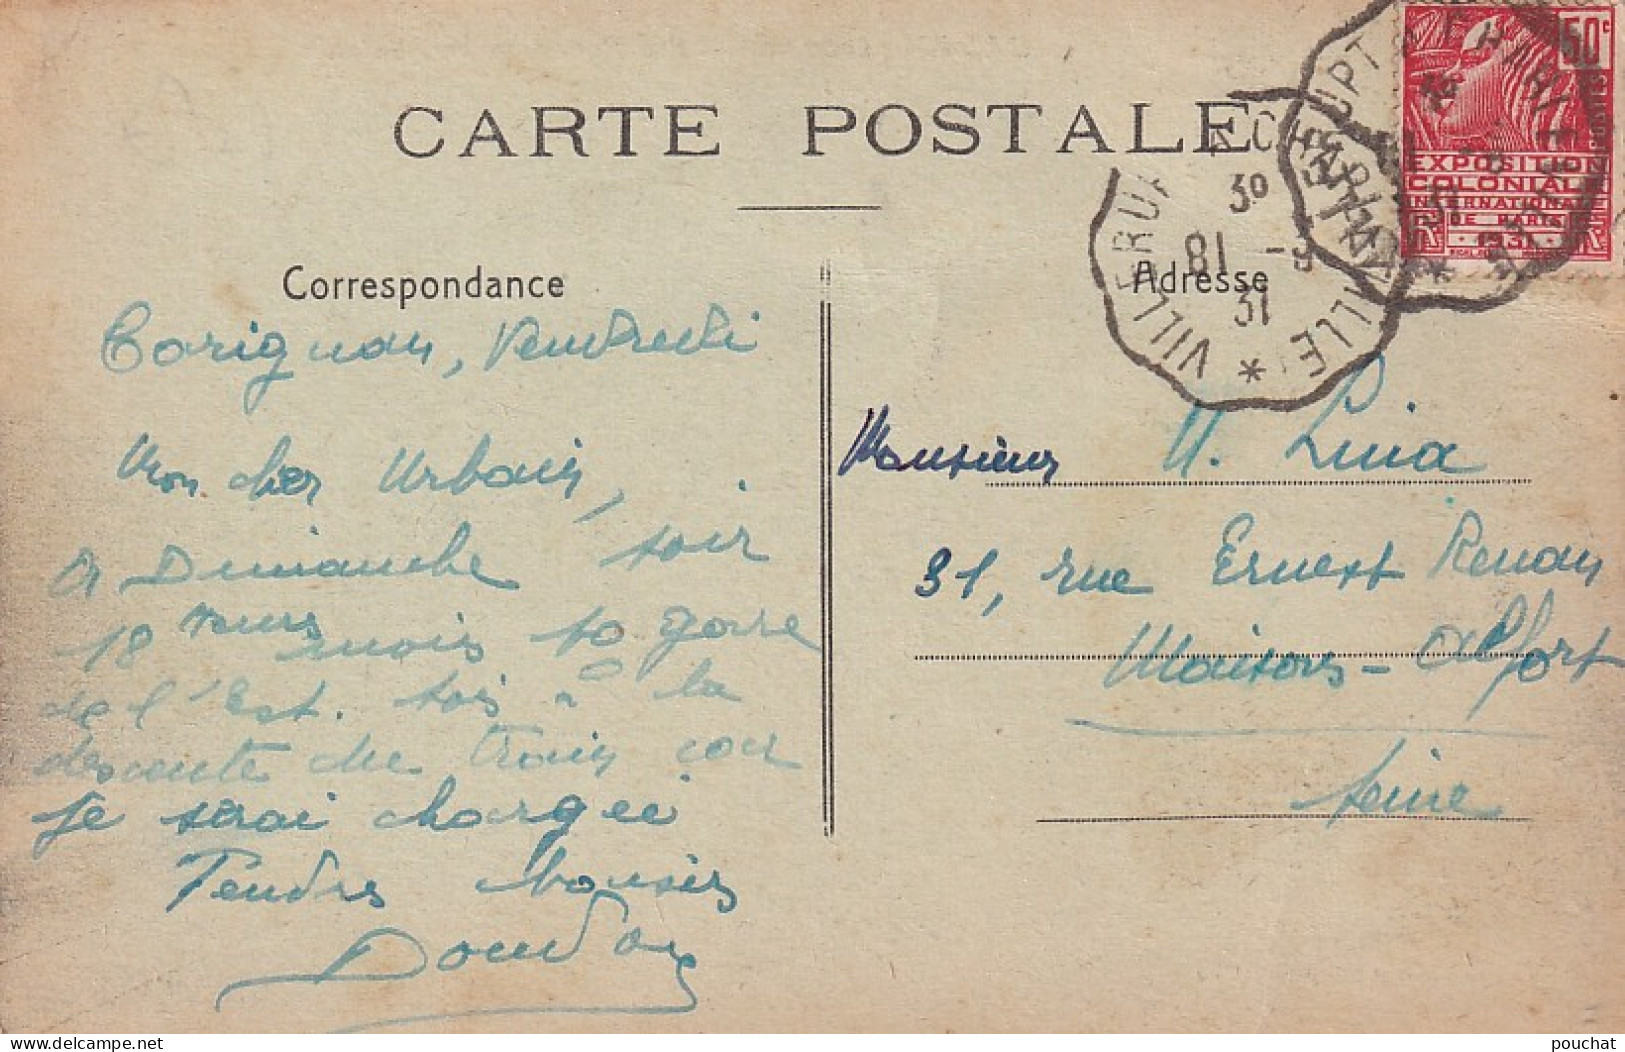 CARTE POSTALE
Correspondance
Carignan, Vendredi
Mon cher Urbain,
A Dimanche soir
18 heures moins 10 gare
de l'Est. sois à la
descente du train car
je serai chargée
Tendres baisers
Doudou
VILLERUPT A CHARLEVILLE *
30
18 - 9
31
Adresse
50c
EXPOSITION
COLONIALE
INTERNATIONALE
DE PARIS
1931
Monsieur U. Luia
31, rue Ernest Renan
Maisons-Alfort
Seine
delcampe.net
pouchat